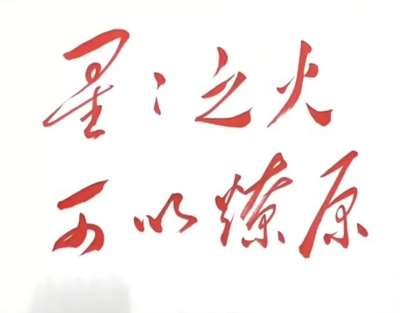 星:之火
可以燎原